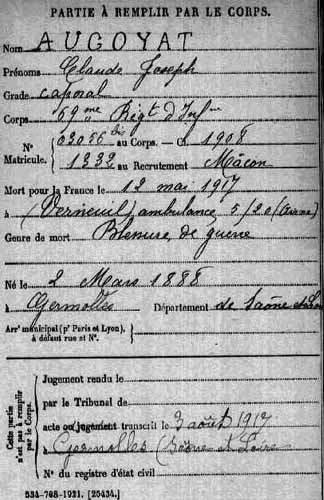 PARTIE À REMPLIR PAR LE CORPS.
Nom AUGOYAT
Prénoms Claude Joseph
Grade caporal
Corps 69me Régt d'Infie
No 03056 bis au Corps. — Cl 1908
Matricule. 1332 au Recrutement Mâcon
Mort pour la France le 12 mai 1917
à Verneuil, ambulance 5/20 (Aisne)
Genre de mort Blessure de guerre
Né le 2 Mars 1888
à Germolles Département de Saône et Loire
Arrt municipal (pr Paris et Lyon), à défaut rue et No.
Cette partie n'est pas à remplir par le Corps.
Jugement rendu le
par le Tribunal de
acte ou jugement transcrit le 3 août 1917
à Germolles (Saône et Loire
No du registre d'état civil
534-708-1921. [25434.]